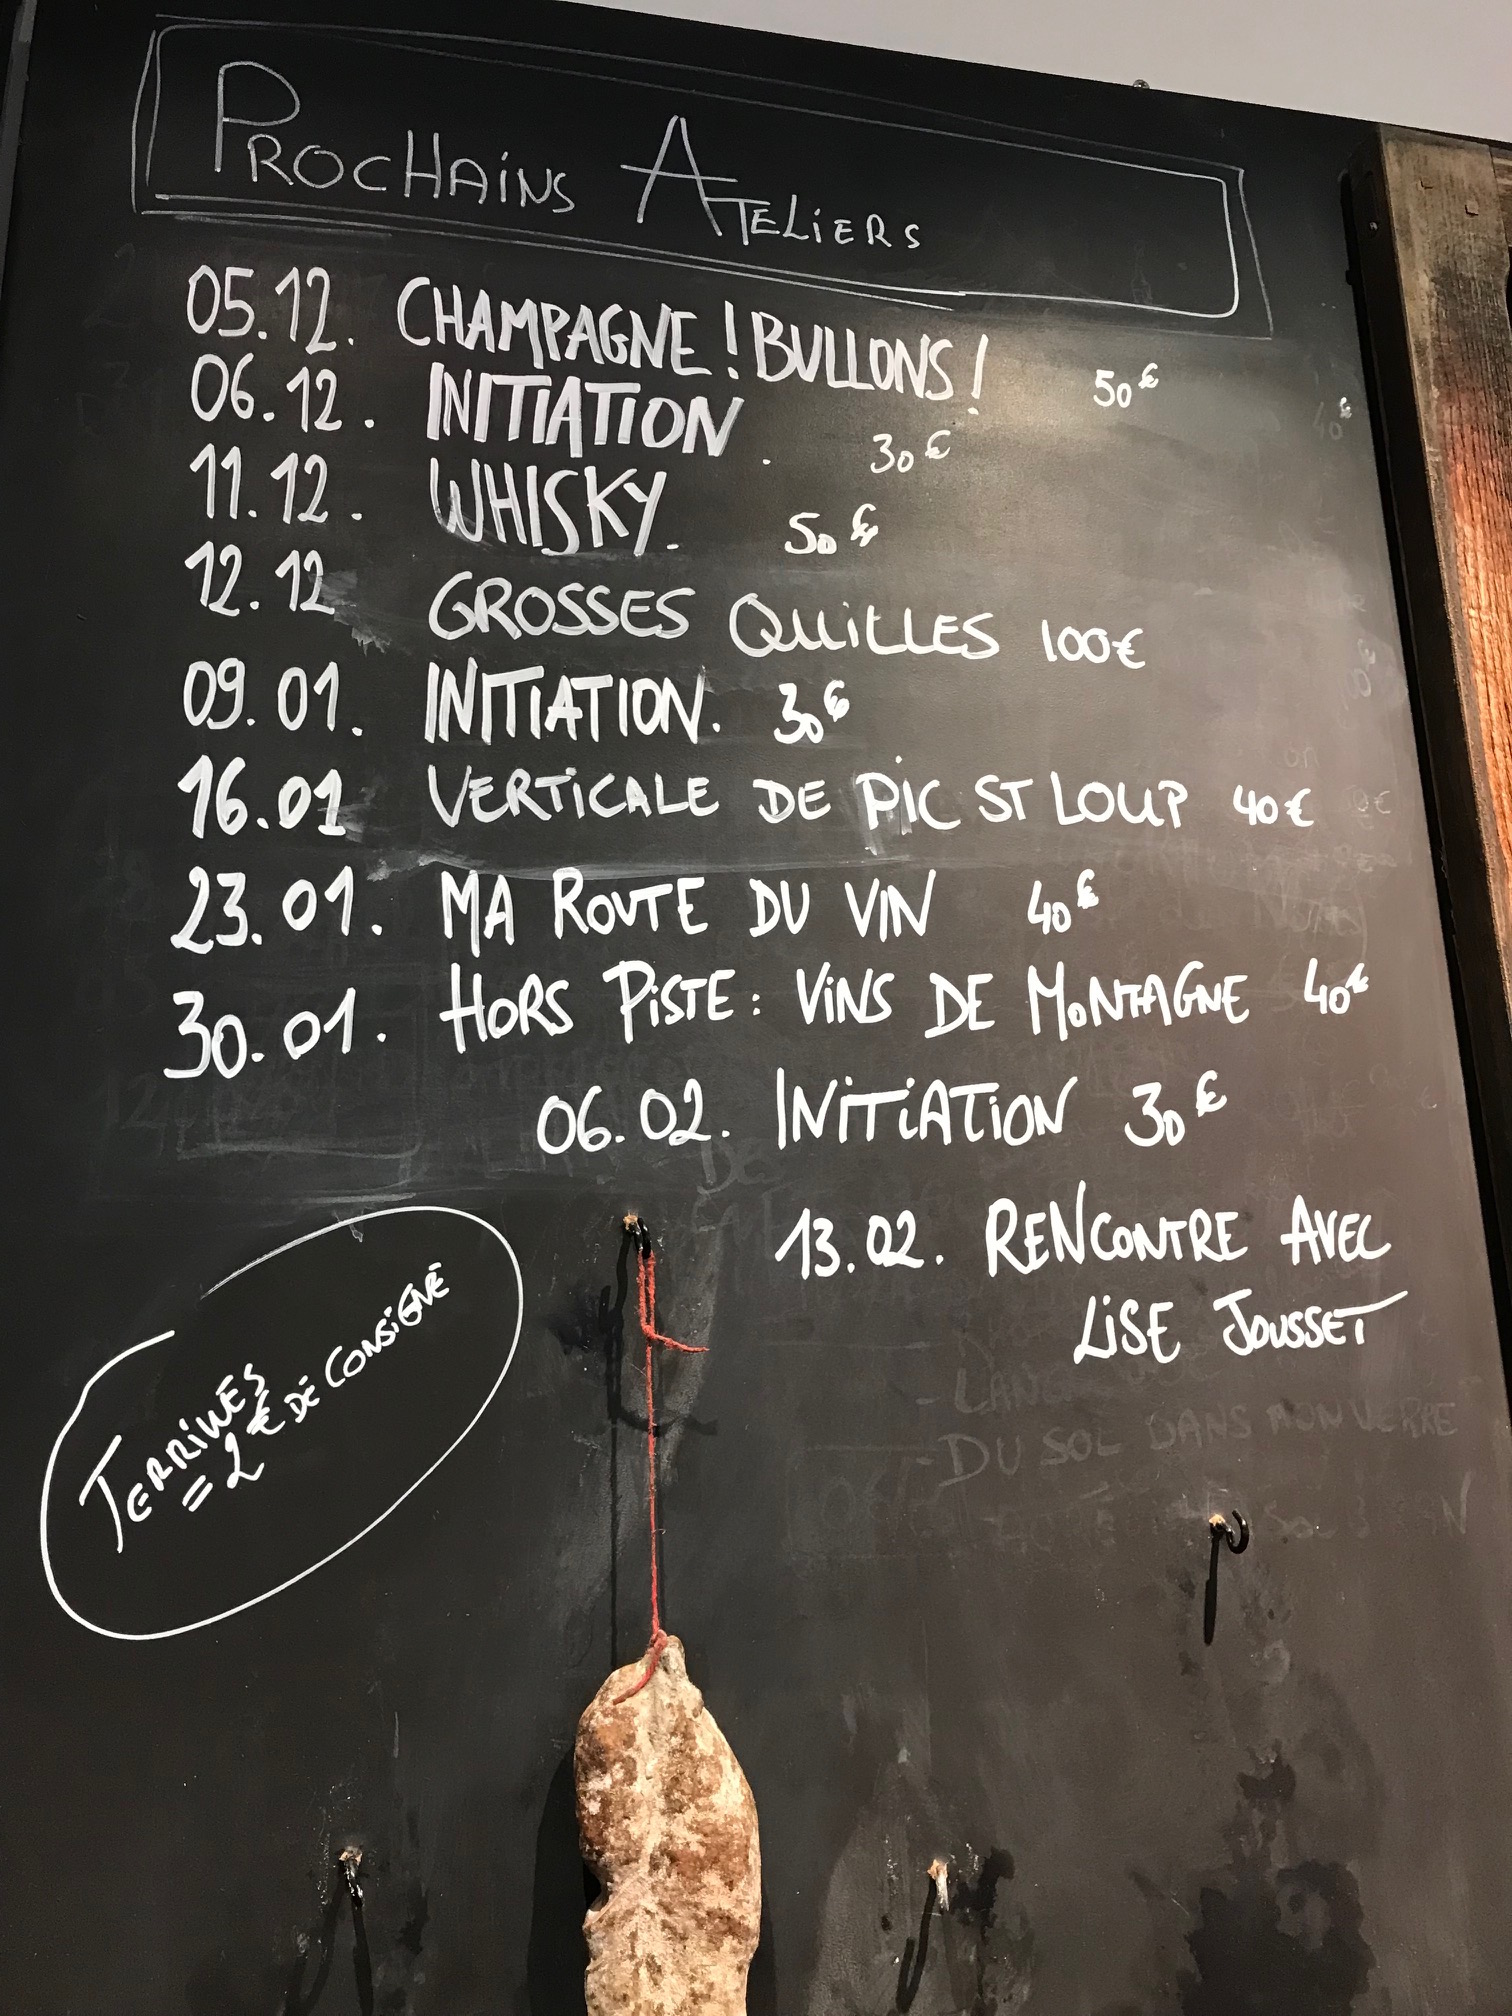 PROCHAINS ATELIERS
05.12. CHAMPAGNE ! BULLONS ! 50€
06.12. INITIATION . 30€
11.12. WHISKY. 50€
12.12 GROSSES QUILLES 100€
09.01. INITIATION. 30€
16.01 VERTICALE DE PIC ST LOUP 40€
23.01. MA ROUTE DU VIN 40€
30.01. HORS PISTE : VINS DE MONTAGNE 40€
06.02. INITIATION 30€
13.02. RENCONTRE AVEC
LISE JOUSSET
TERRINES
= 2€ DE CONSIGNE
- DU SOL DANS MON VERRE